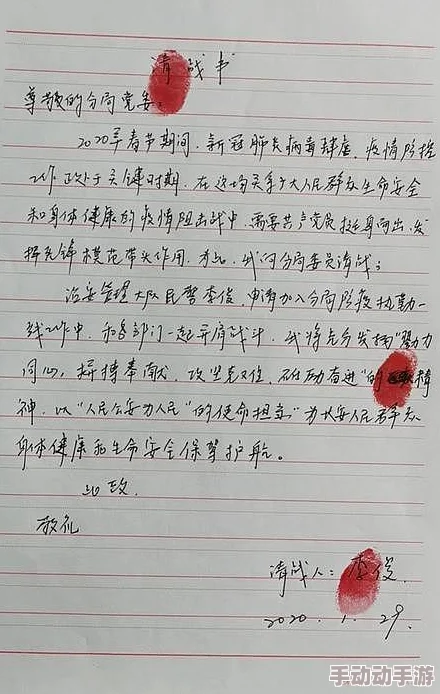 请战书
尊敬的分局党委：
2020年春节期间，新冠肺炎病毒肆虐，疫情防控
工作正处于关键时期，在这场关乎广大人民群众生命安全
和身体健康的疫情阻击战中，需要共产党员挺身而出，发
挥先锋模范带头作用，为此，我向分局委员请战：
治安管理大队民警李俊，申请加入分局防疫执勤一
线工作中，和各部门一起并肩战斗，我将充分发扬“勠力
同心，拼搏奉献，攻坚克难，砥砺奋进”的精
神，以“人民公安为人民”的使命担当，为长安人民群众
身体健康和生命安全保驾护航。
此致
敬礼
请战人：李俊
2020.1.29.
手动动手游